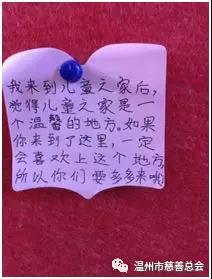 我来到儿童之家后,
觉得儿童之家是一
个温馨的地方。如果
你来到了这里,一定
会喜欢上这个地方,
所以你们要多多来哟
温州市慈善总会